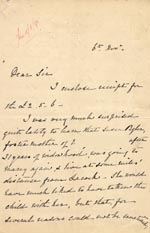 6th Novr.
Dear Sir
I enclose receipt for
the £2. 5. 6 -
I was very much surprised
quite lately to hear that
foster mother of
after
21 years of widowhood was going to
marry again & live at some miles'
distance from the
She would
have much liked to have taken the
child with her, but that for
several reasons could not be